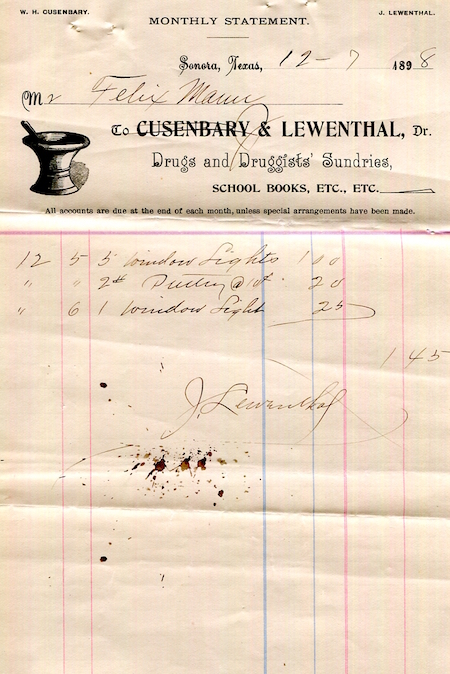 W. H. CUSENBARY. J. LEWENTHAL.
MONTHLY STATEMENT.
Sonora, Texas, 12-7 1898
Mr Felix Mann
To CUSENBARY & LEWENTHAL, Dr.
Drugs and Druggists' Sundries,
SCHOOL BOOKS, ETC., ETC.
All accounts are due at the end of each month, unless special arrangements have been made.
12 5 5 Window Lights 1 00
" " 2# Putty @ 10¢ 20
" 6 1 Window Light 25
1 45
J. Lewenthal